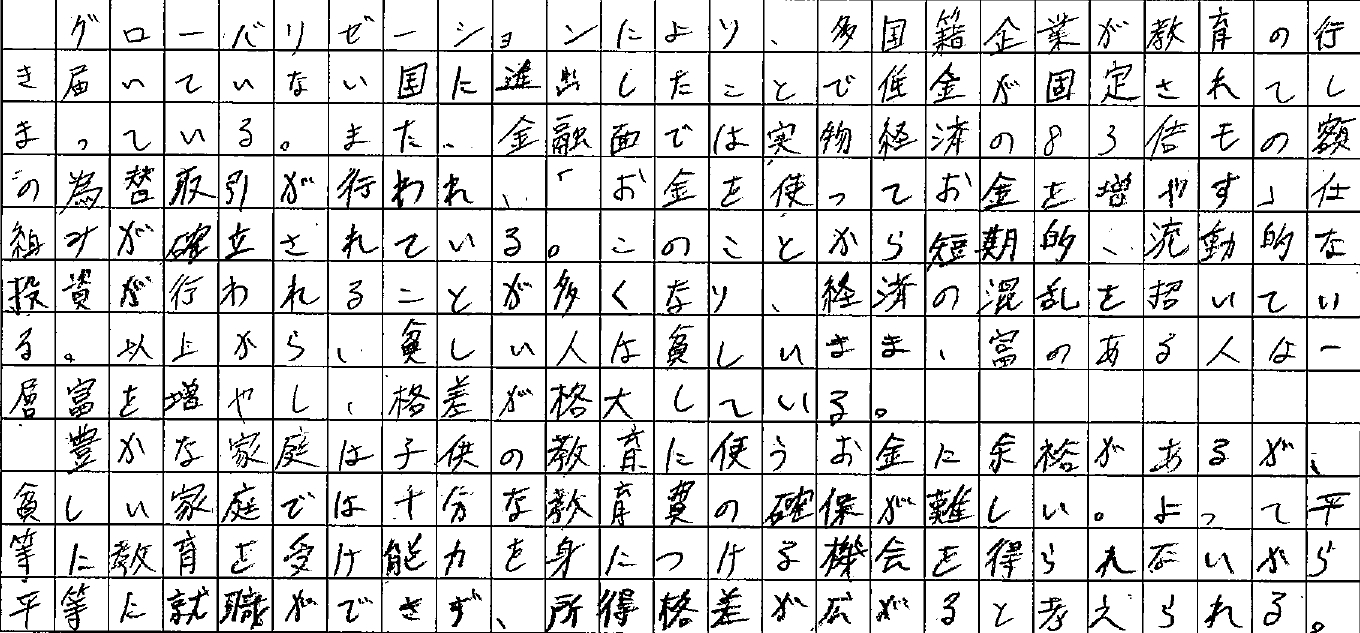 グローバリゼーションにより、多国籍企業が教育の行
き届いていない国に進出したことで低金が固定されてし
まっている。また、金融面では実物経済の83倍もの額
の為替取引が行われ、「お金を使ってお金を増やす」仕
組みが確立されている。このことから短期的、流動的な
投資が行われることが多くなり、経済の混乱を招いてい
る。以上から、貧しい人は貧しいまま、富のある人は一
層富を増やし、格差が格大している。
　豊かな家庭は子供の教育に使うお金に余裕があるが、
貧しい家庭では十分な教育費の確保が難しい。よって平
等に教育を受け能力を身につける機会を得られないから
平等に就職ができず、所得格差が広がると考えられる。